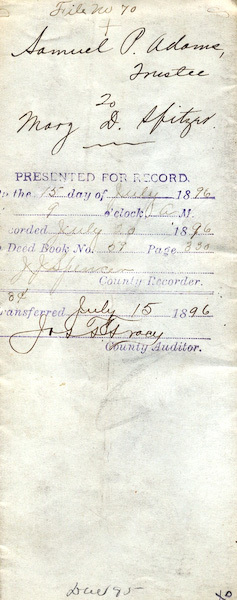 File No 70
Samuel P. Adams,
Trustee
To
Mary D. Spitzer.
PRESENTED FOR RECORD.
the 15 day of July 1896
o'clock M.
corded July 1896
Deed Book No. 57 Page
County Recorder.
ransferred July 15 1896
Jos T Tracy
County Auditor.